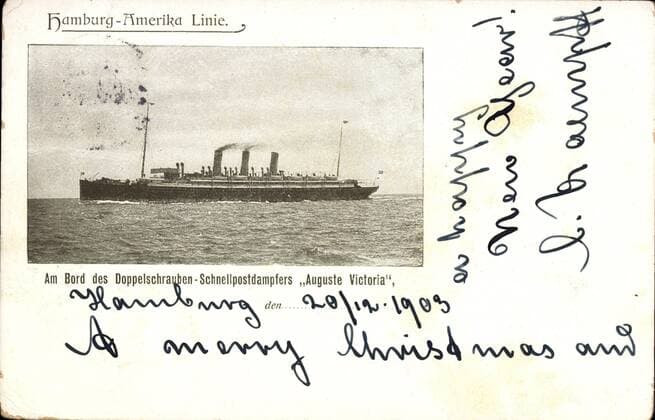 Hamburg-Amerika Linie.
Am Bord des Doppelschrauben-Schnellpostdampfers „Auguste Victoria“,
Hamburg den 20/12.1903
A merry Christmas and
a happy
New Year!